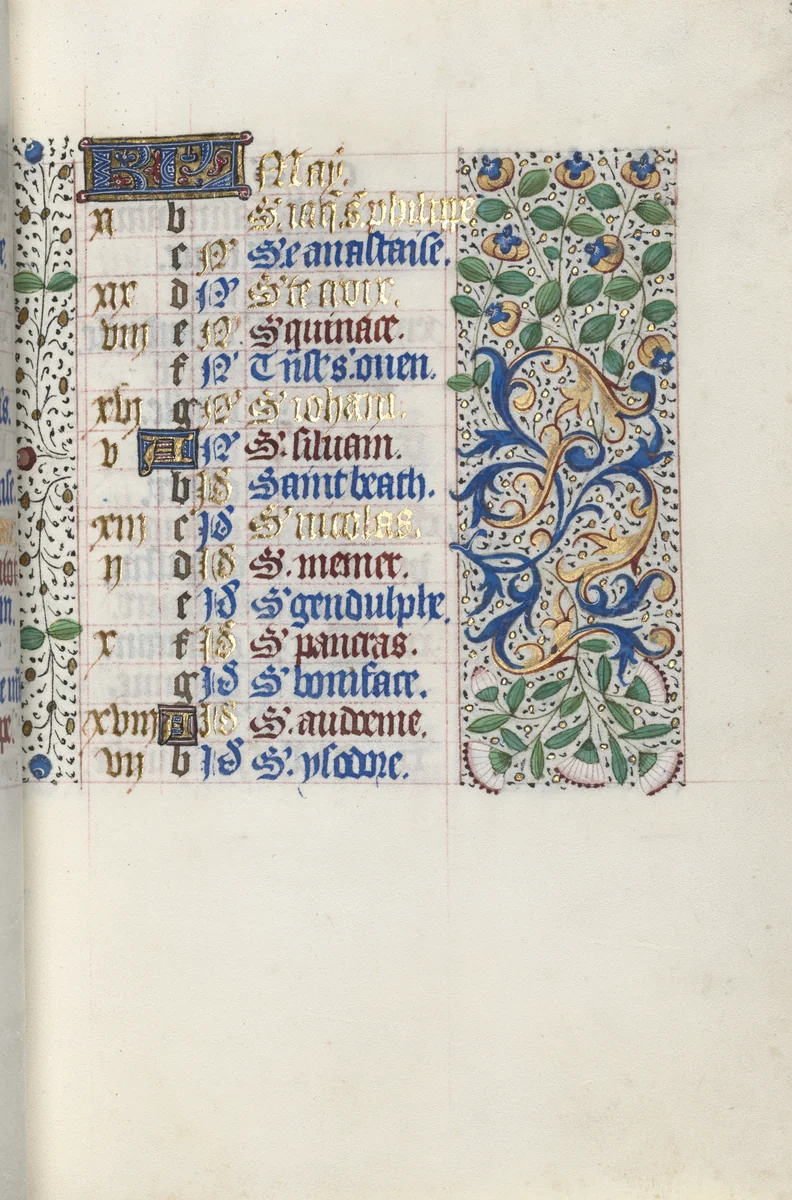 KL May.
xi b S. iaq̃. s. philippe
c N. Ste anastaise.
xix d N. Ste croix.
viii e N. S. quiriace.
f N. Trãsl. s. ouen.
xvi g N. S. iohan.
v A N. S. siluain.
b Id Saint beath.
xiii c Id S. nicolas.
ii d Id S. memer.
e Id S. gendulphe.
x f Id S. pancras.
g Id S. boniface.
xviii A Id S. audoene.
vii b Id S. ysodore.